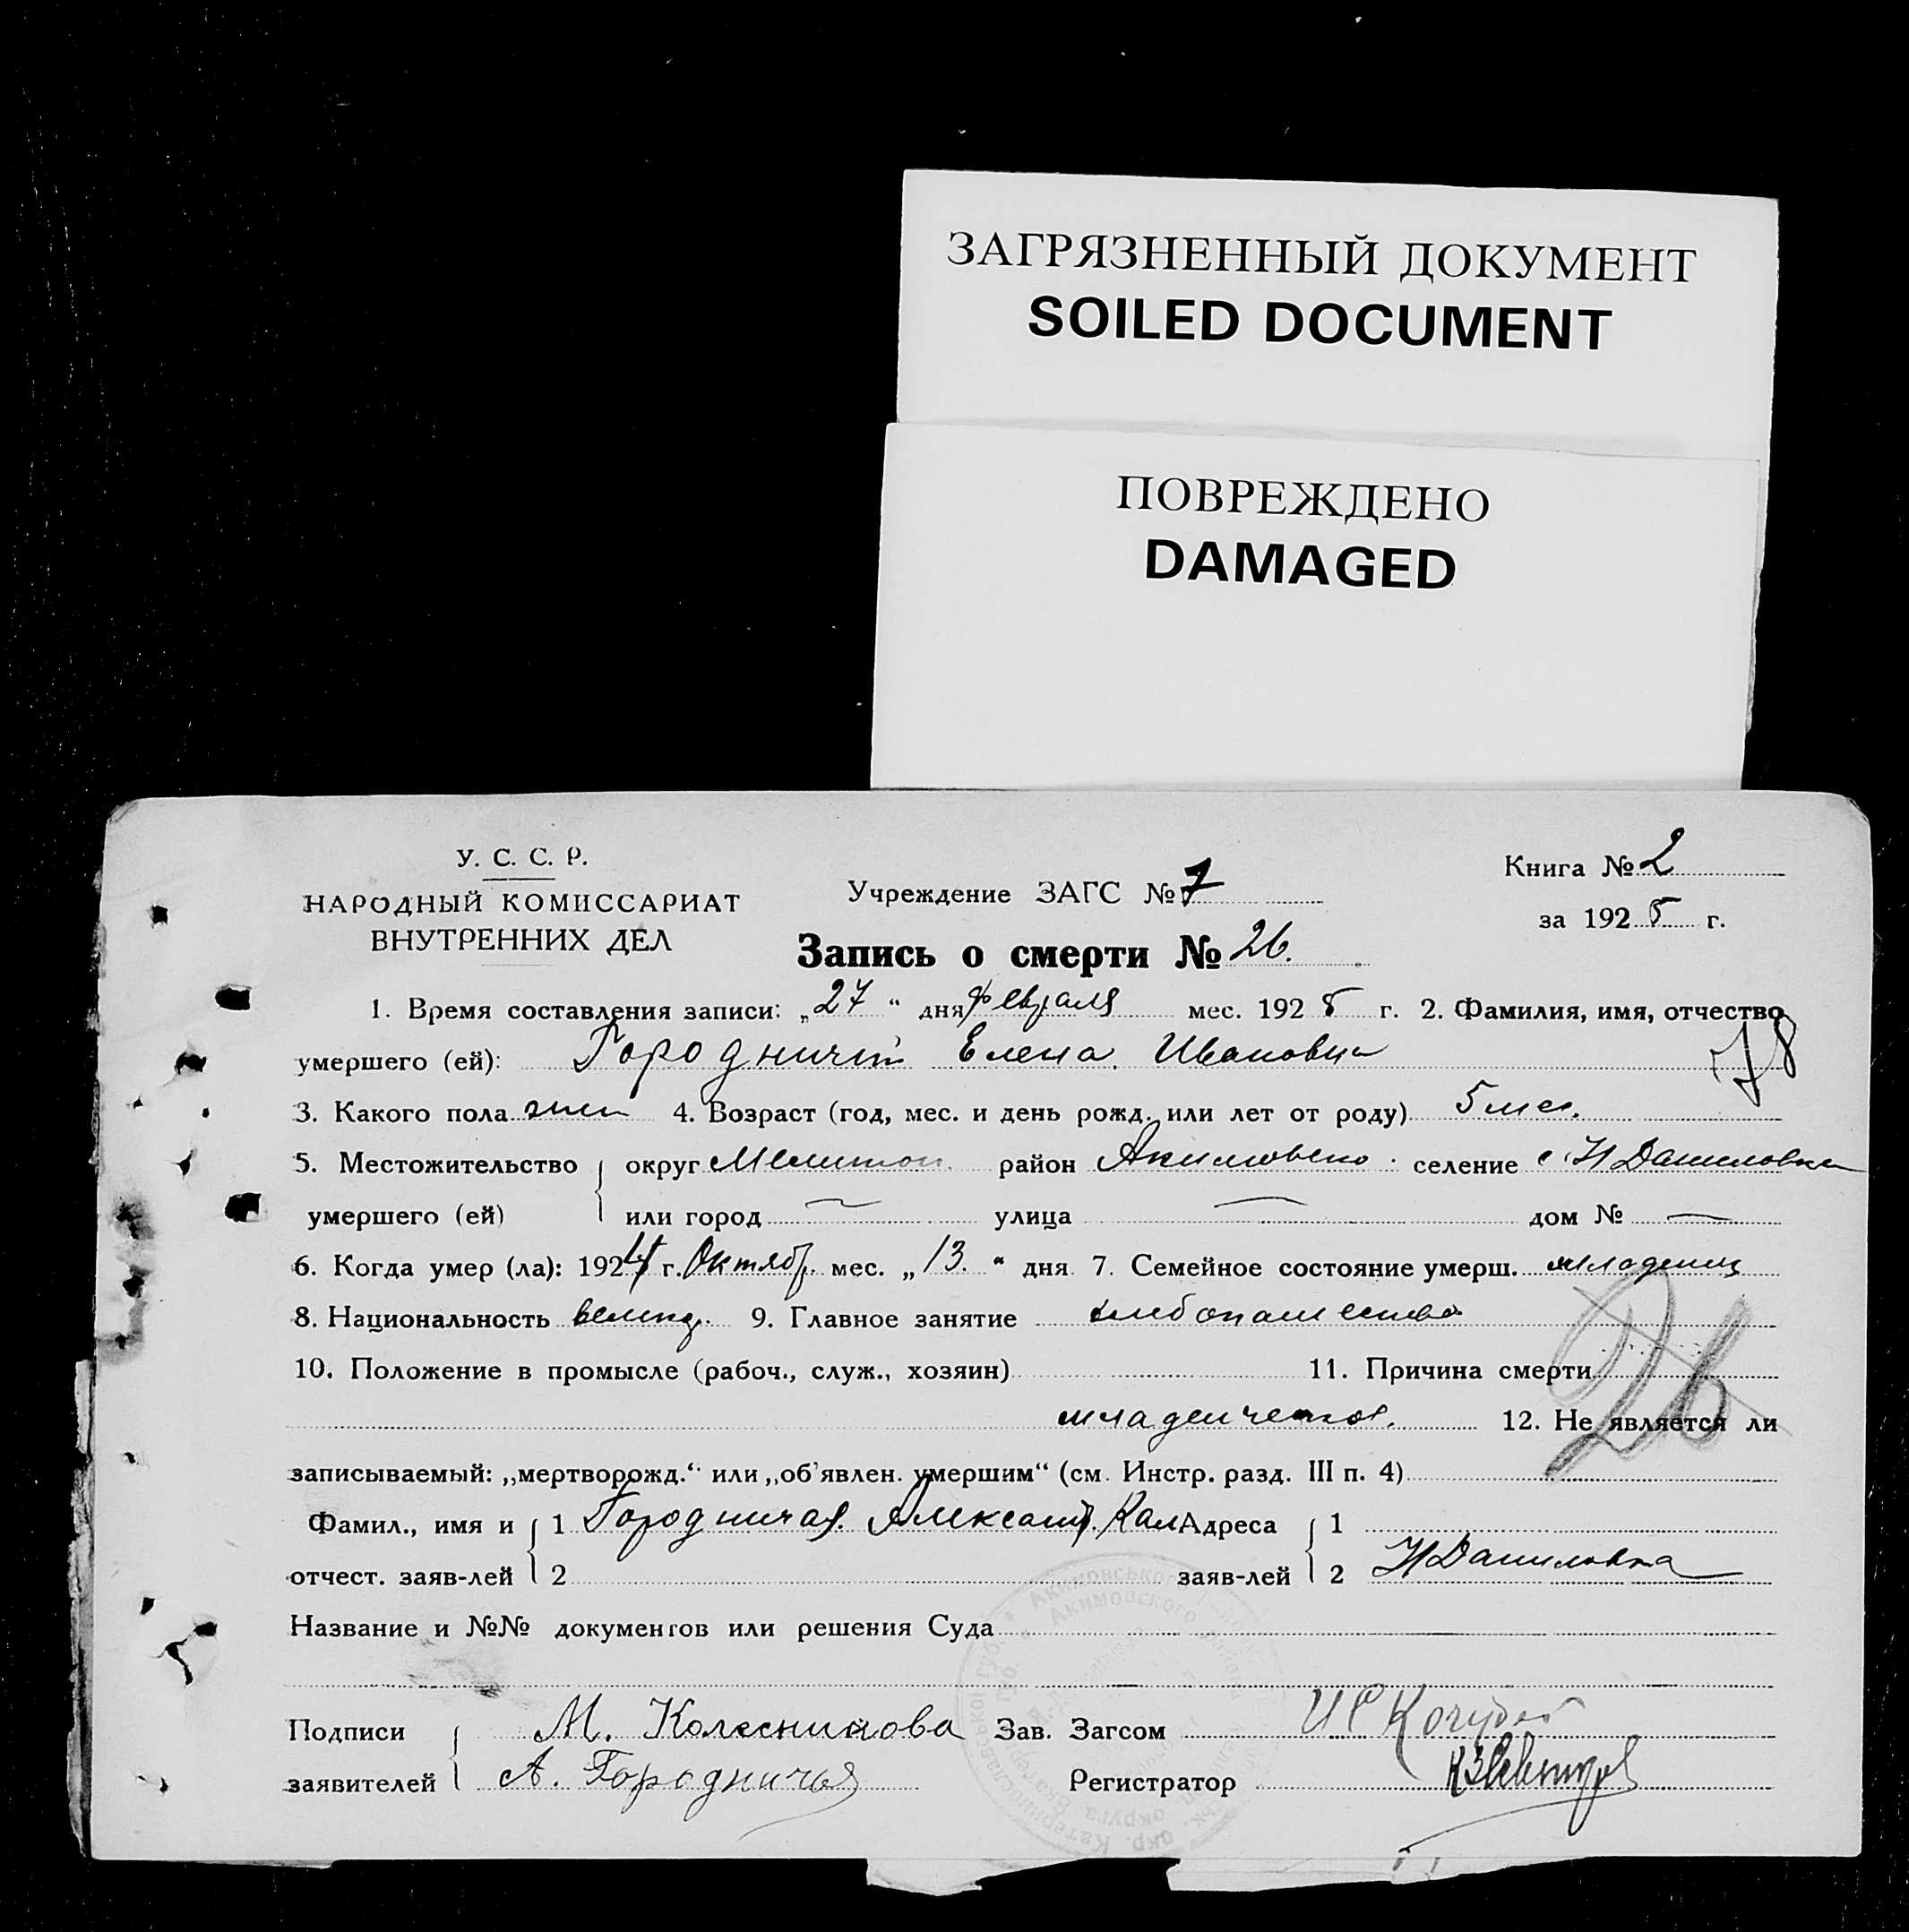 ЗАГРЯЗНЕННЫЙ ДОКУМЕНТ
SOILED DOCUMENT
ПОВРЕЖДЕНО
DAMAGED
У. С. С. Р.
НАРОДНЫЙ КОМИССАРИАТ
ВНУТРЕННИХ ДЕЛ
Учреждение ЗАГС № 7
Книга № 2
за 1925 г.
Запись о смерти № 26.
1. Время составления записи: „27“ дня февраля мес. 1925 г. 2. Фамилия, имя, отчество
умершего (ей): Городничий Елена Ивановна
78
3. Какого пола жен 4. Возраст (год, мес. и день рожд. или лет от роду) 5 мес.
5. Местожительство округ Мелитоп. район Акимовско селение с. Н Даниловка
умершего (ей) или город — улица — дом № —
6. Когда умер (ла): 1924 г. Октябр. мес. „13.“ дня 7. Семейное состояние умерш. младенец
8. Национальность 9. Главное занятие хлебопашество
10. Положение в промысле (рабоч., служ., хозяин) 11. Причина смерти
26
младенческая. 12. Не является ли
записываемый: „мертворожд.“ или „об'явлен. умершим“ (см. Инстр. разд. III п. 4)
Фамил., имя и 1 Городничая Александ. Кал Адреса 1
отчест. заяв-лей 2 заяв-лей 2 Н Даниловка
Название и №№ документов или решения Суда
Подписи М. Колесникова Зав. Загсом
заявителей А. Городничья Регистратор